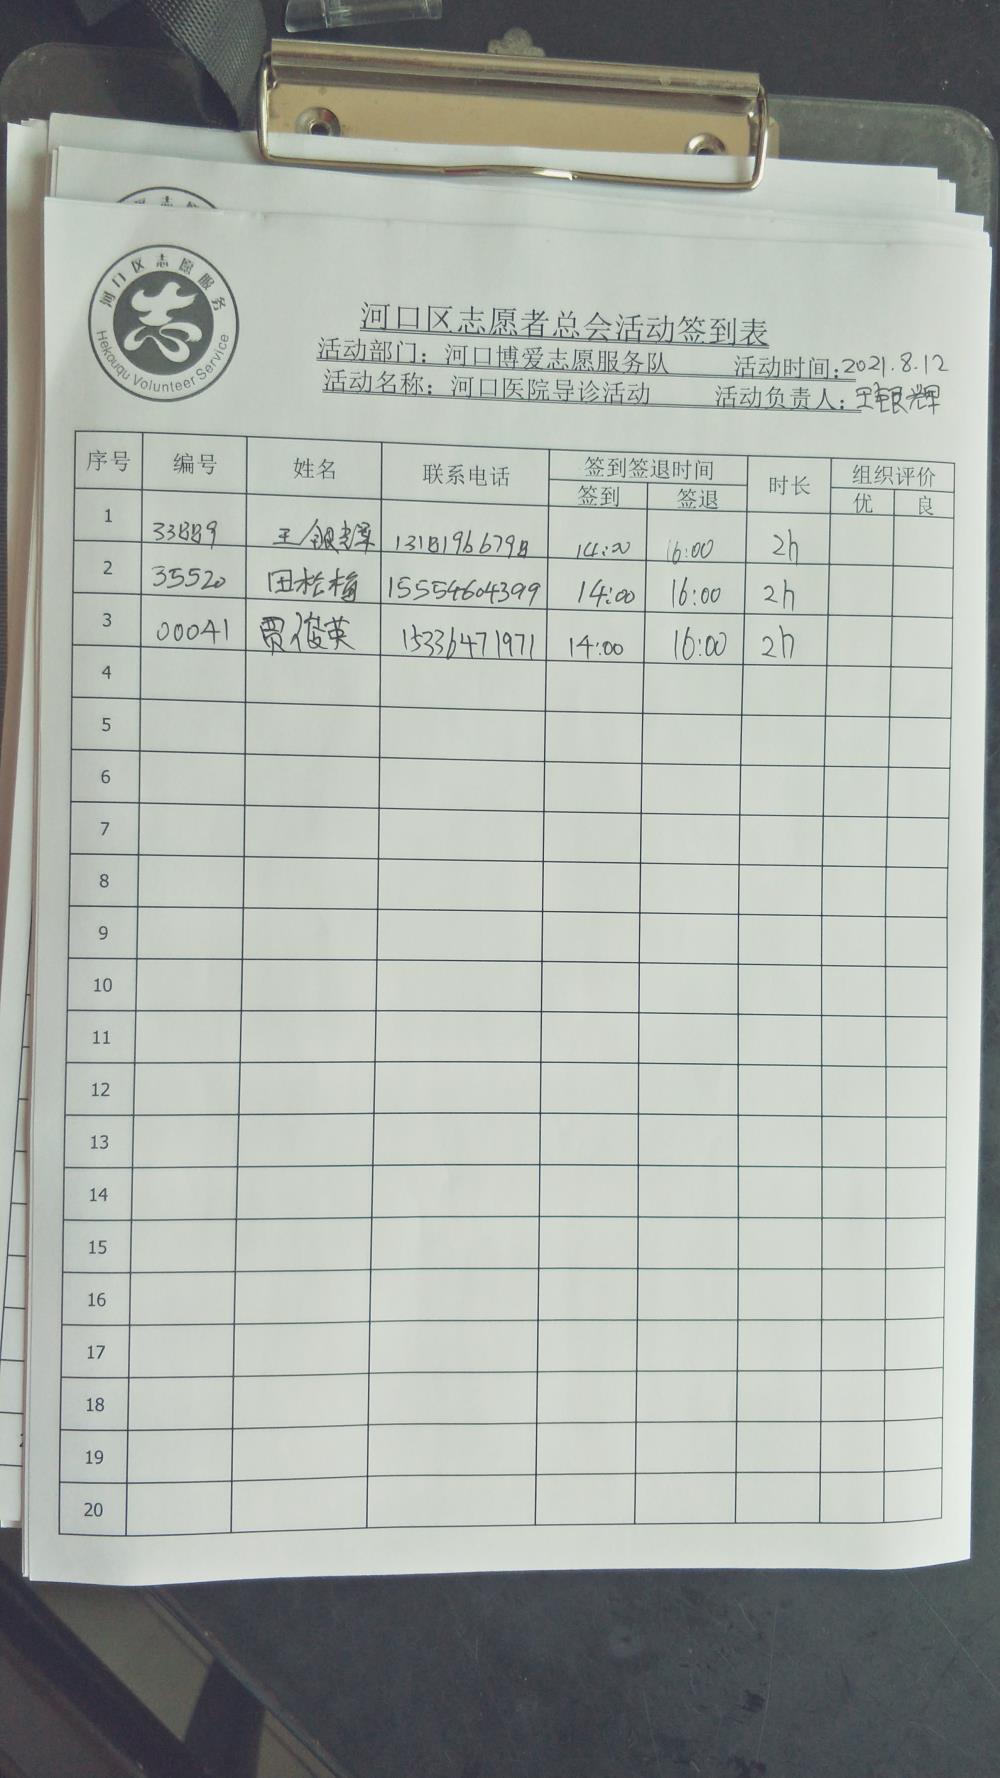 河口区志愿服务
Hekouqu Volunteer Service
河口区志愿者总会活动签到表
活动部门：河口博爱志愿服务队 活动时间：2021.8.12
活动名称：河口医院导诊活动 活动负责人：王银辉
序号 编号 姓名 联系电话 签到签退时间 时长 组织评价
签到 签退 优 良
1 33889 王银辉 13181966798 14:00 16:00 2h
2 35520 田松梅 15554604399 14:00 16:00 2h
3 00041 贾俊英 15336471971 14:00 16:00 2h
4
5
6
7
8
9
10
11
12
13
14
15
16
17
18
19
20